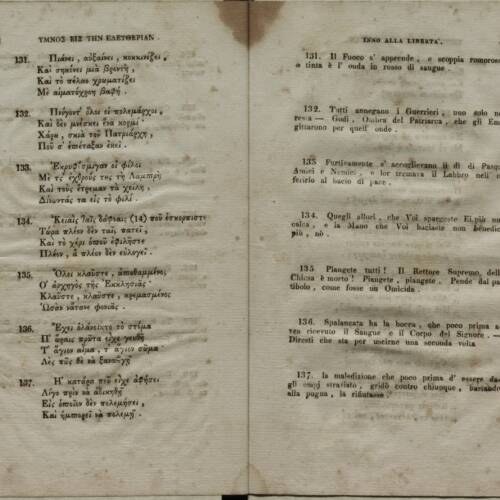 ΥΜΝΟΣ ΕΙΣ ΤΗΝ ΕΛΕΥΘΕΡΙΑΝ.
131. Πιάνει, αὐξαίνει, κοκκινίζει,
Καὶ σηκόνει μιὰ βροντὴ,
Καὶ τὸ πέλαο χρωματίζει
Μὲ αἱματόχροη βαφή.
132. Πνίγοντ' ὅλοι οἱ πολέμαρχοι,
Καὶ δὲν μνέσκει ἕνα κορμί.
Χάρα, σκιὰ τοῦ Πατριάρχη,
Ποῦ σ' ἐπέταξαν ἐκεῖ.
133. οἱ φίλοι
Μὲ τς' ἐχθρούς της τὴ Λαμπρὴ
Καὶ τοὺς ἔτρεμαν τὰ χείλη,
Δίνοντάς τα εἰς τὸ φιλί.
134. δάφναις (14) ποῦ ἐσκορπίστε
Τώρα πλέον δὲν ταῖς πατεῖ,
Καὶ τὸ χέρι ὁποῦ ἐφιλῆστε
Πλέον, ἂ πλέον δὲν εὐλογεῖ.
135. Ὅλοι κλαῦστε, ἀποθαμμένος
Ὁ ἀρχηγὸς τῆς Ἐκκλησιᾶς
Κλαῦστε, κλαῦστε, κρεμασμένος
Ὡσὰν νἄτανε φονιάς.
136. Ἔχει ὁλάνοικτο τὸ στόμα
Π' ὥραις πρῶτα εἶχε γευθῇ
Τ' ἅγιον αἷμα, τ' ἅγιον σῶμα
Λὲς πῶς θὲ νὰ ξαναβγῇ
137. Ἡ κατάρα ποῦ εἶχε ἀφήσει
Λίγο πρὶν νὰ ἀδικηθῇ
Εἰς ὁποῖον δὲν πολεμήσει,
Καὶ ἠμπορεῖ νὰ πολεμῇ.
INNO ALLA LIBERTA'.
131. Il Fuoco s' apprende, e scoppia romoroso
e tinta è l' onda in rosso di sangue.
132. Tutti annegano i Guerrieri, uno solo ne
resta — Godi, Ombra del Patriarca, che gli
gittarono per quell' onde.
133 Furtivamente s' accoglievano il dì di
Amici e Nemici, e lor tremava il Labbro nell'
ferirlo al bacio di pace.
134. Quegli allori, che Voi spargeste Ei più
calca, e la Mano che Voi baciaste non
più, nò.
135 Piangete tutti! Il Rettore Supremo
Chiesa è morto! Piangete, piangete. Pende dal
tibolo, come fosse un Omicida.
136. Spalancata ha la bocca, che poco prima
ricevuto il Sangue e il Corpo del Signore. —
Diresti che sta per uscirne una seconda volta
137. la maledizione che poco prima d' essere
gli straziato, gridò contro chiunque,
alla pugna, la rifiutasse